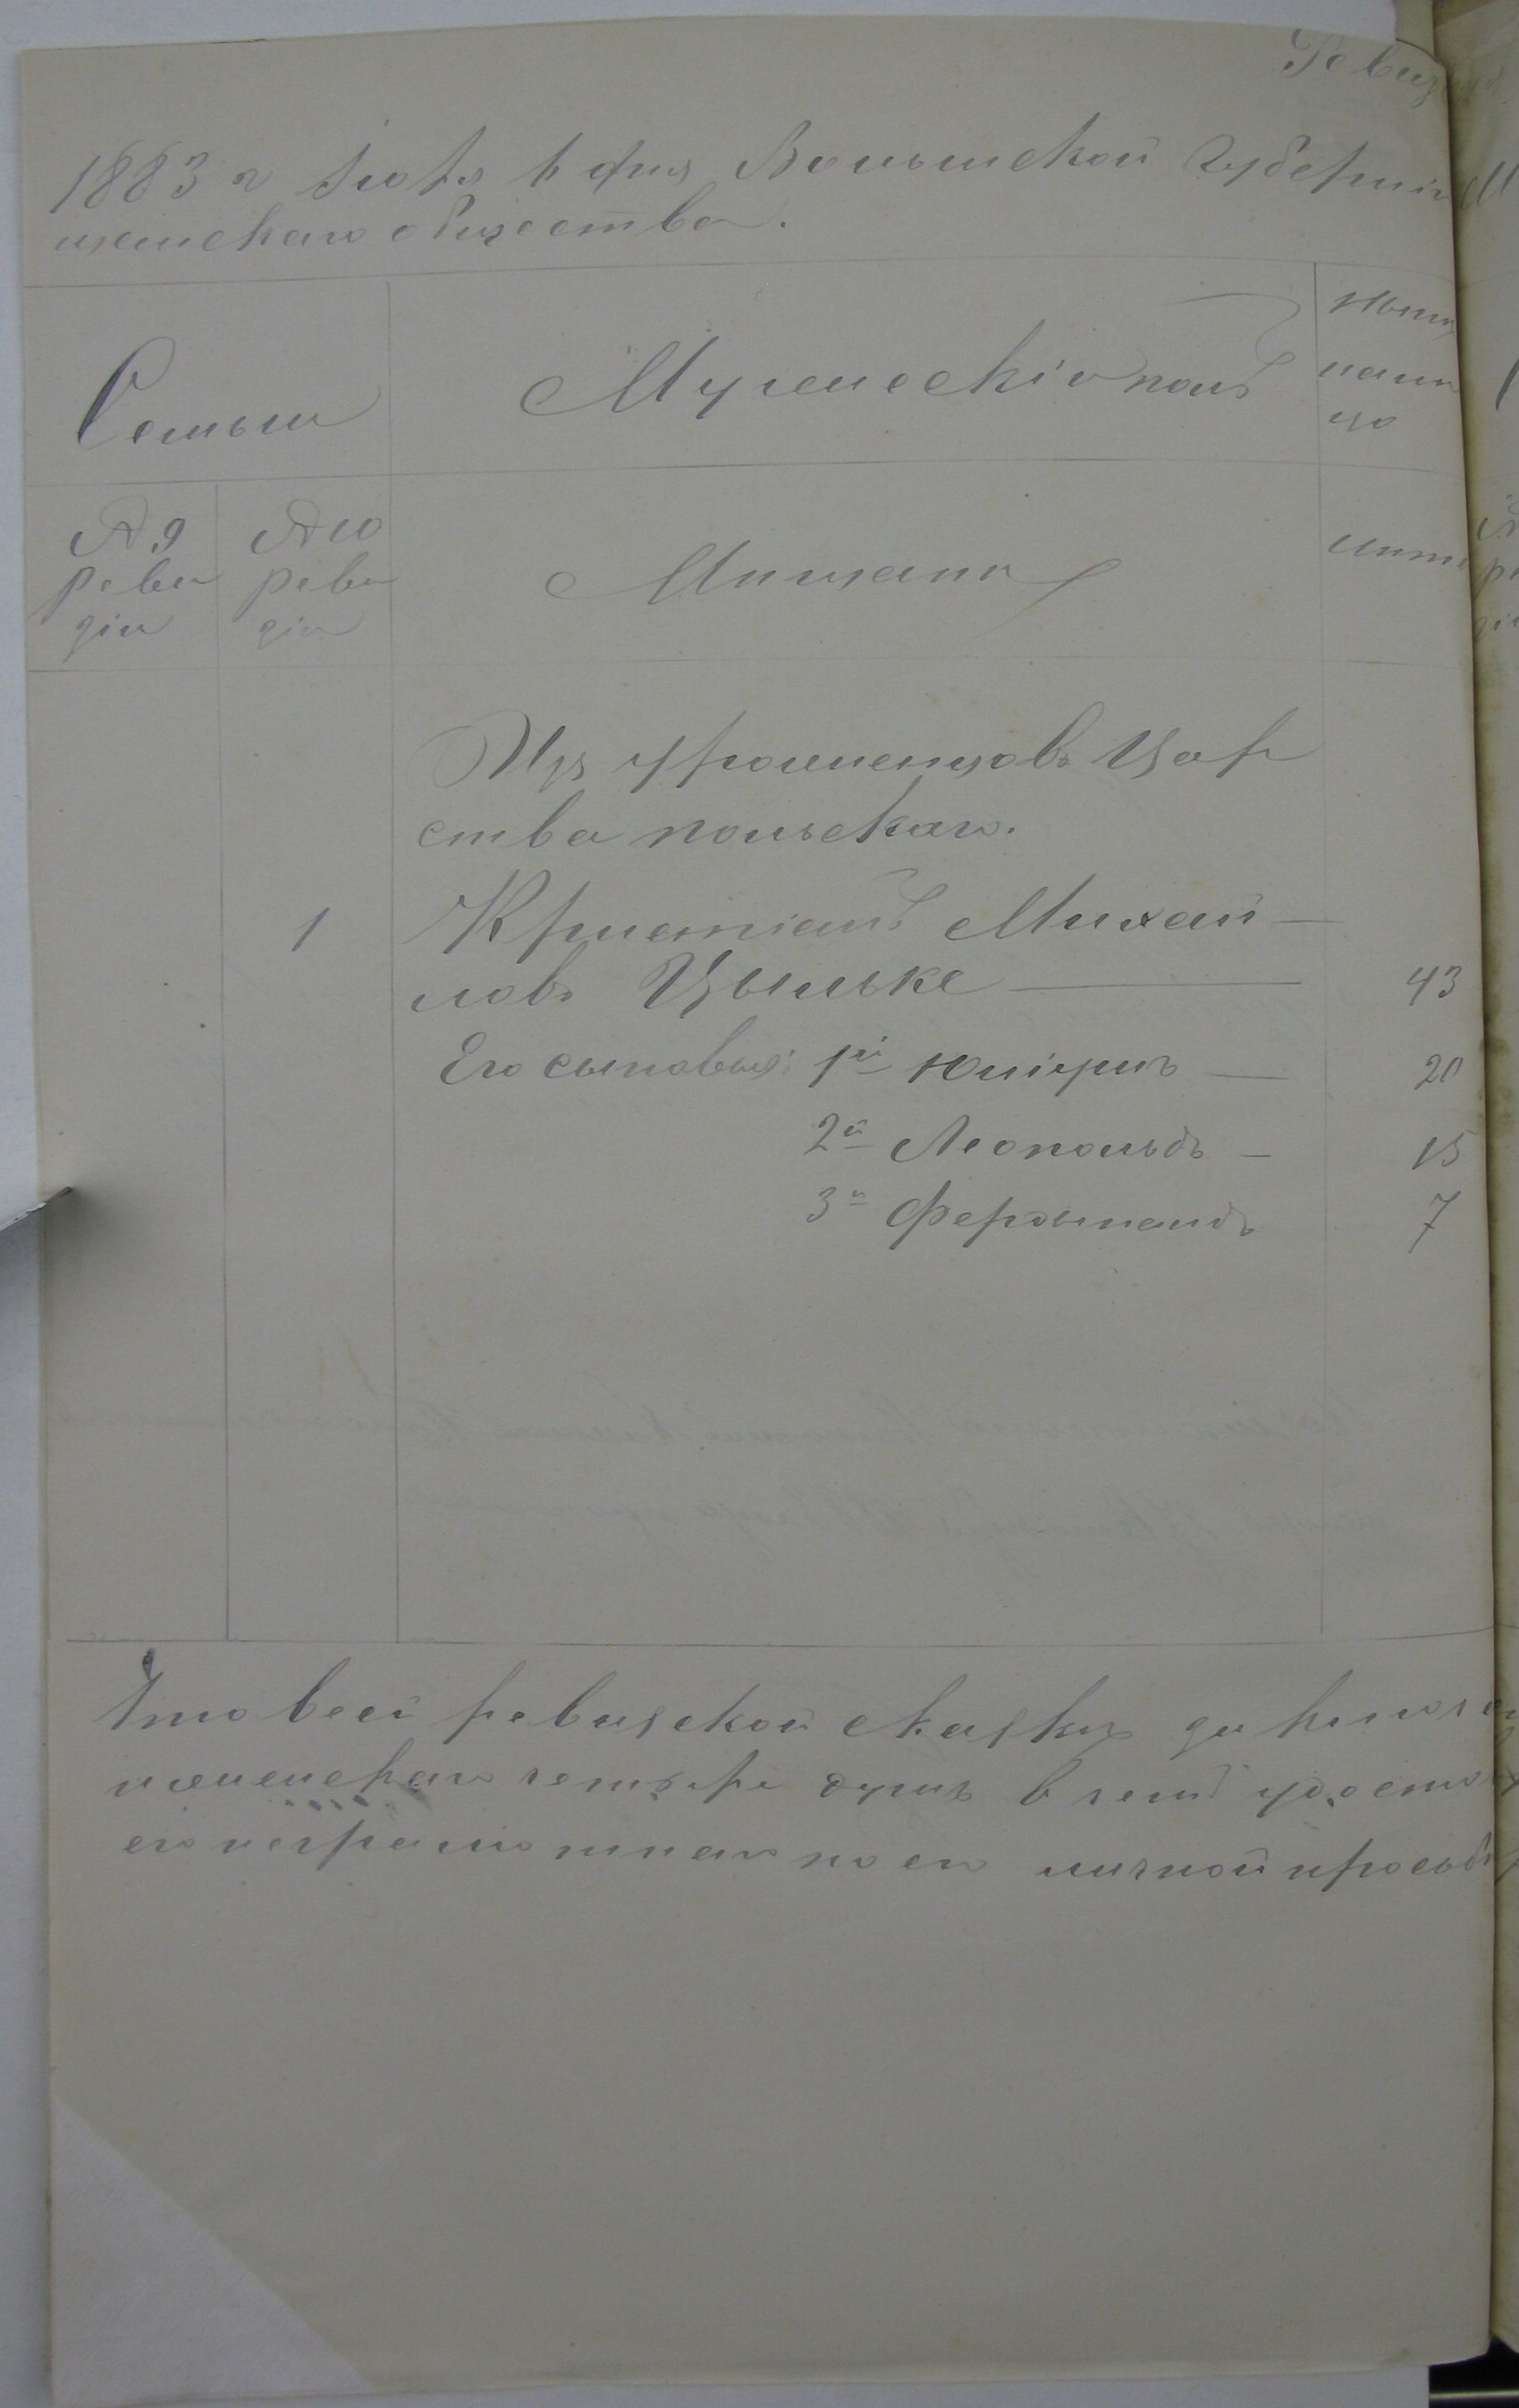 Ревиз
1883 г Iюля 6 дня Волынской Губернiи
щанскаго общества.
Семьи
Мужескiй полъ
Нын
нали
цо
№ 9
реви
зiи
№ 10
реви
зiи
Мищани
лита
Изъ уроженцовъ Цар
ства польскаго.
1 Кристiанъ Михай—
ловъ Цыльке — 43
Его сыновья: 1й Юлiусъ — 20
2й Леопольдъ — 15
3й Фердинандъ 7
Что всей ревизской сказки
женскаго четыре душъ в чемъ удосто
его неграмотнаго по его личной прозьб